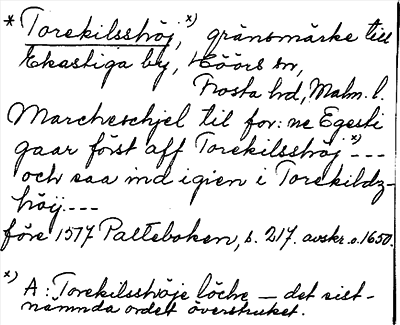 * Torekilsshöj,ˣ⁾ gränsmärke till
Ekastiga by, Höörs sn,
Frosta hd, Malm. l.
Marcheschjel til for: ne Egesti
gaar först aff Torekilsshöjˣ⁾ ---
och saa ind igien i Torekildz-
höij ----
före 1577 Palteboken, s. 217. avskr. o. 1650.
ˣ⁾ A: Torekilsshöje löche — det sist-
nämnda ordet överstruket.